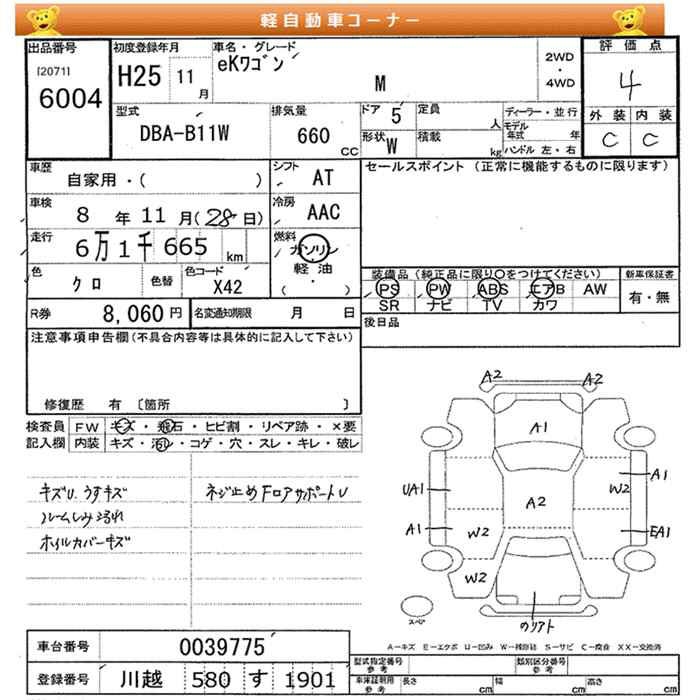 軽自動車コーナー
出品番号
[2071]
6004
初度登録年月
H25 11 月
車名・グレード
eKワゴン
M
2WD
・
4WD
評価点
4
外装 内装
C C
型式
DBA-B11W
排気量
660 CC
ドア 5
形状 W
定員 人
積載 kg
ディーラー・並行
モデル年式 年
ハンドル 左・右
車歴
自家用・( )
シフト
AT
セールスポイント (正常に機能するものに限ります)
車検
8 年 11 月 (28 日)
冷房
AAC
走行
6万1千665 km
燃料
ガソリン
軽油
( ・ )
色
クロ
色替
色コード
X42
装備品 (純正品に限り○をつけてください)
PS PW ABS エアB AW
SR ナビ TV カワ
新車保証書
有・無
R券 8,060 円
名変通知期限 月 日
後日品
注意事項申告欄(不具合内容等は具体的に記入して下さい)
修復歴 有 〔箇所 〕
検査員
記入欄
FW キズ・飛石・ヒビ割・リペア跡・×要
内装 キズ・汚レ・コゲ・穴・スレ・キレ・破レ
キズU.うすキズ
ルームしみ汚れ
ホイルカバーキズ
ネジ止めFロアサポートU
A2 A2
A1
A1
UA1 W2
A2
A1 W2 EA1
W2
スペア
のりアト
A-キズ E-エクボ U-凹み W-補修跡 S-サビ C-腐食 XX-交換済
車台番号 0039775
登録番号 川越 580 す 1901
型式指定番号 参考
類別区分番号 参考
車庫証明用 参考
長さ cm 幅 cm 高さ cm